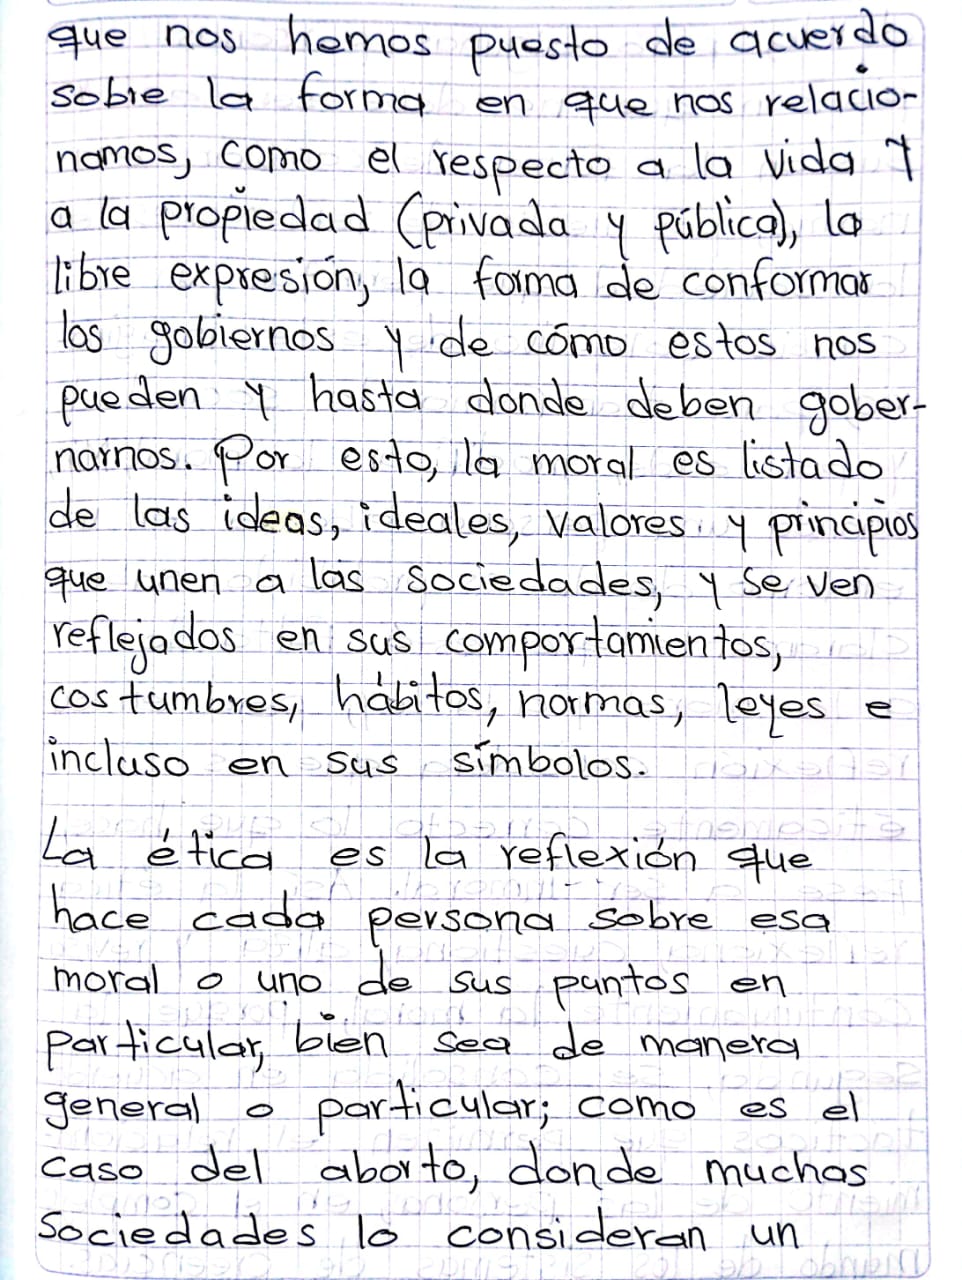 que nos hemos puesto de acuerdo
sobre la forma en que nos relacio-
namos, como el respecto a la vida y
a la propiedad (privada y pública), la
libre expresión, la forma de conformar
los gobiernos y de cómo estos nos
pueden y hasta donde deben gober-
narnos. Por esto, la moral es listado
de las ideas, ideales, valores y principios
que unen a las sociedades, y se ven
reflejados en sus comportamientos,
costumbres, hábitos, normas, leyes e
incluso en sus símbolos.
La ética es la reflexión que
hace cada persona sobre esa
moral o uno de sus puntos en
particular, bien sea de manera
general o particular; como es el
caso del aborto, donde muchas
sociedades lo consideran un